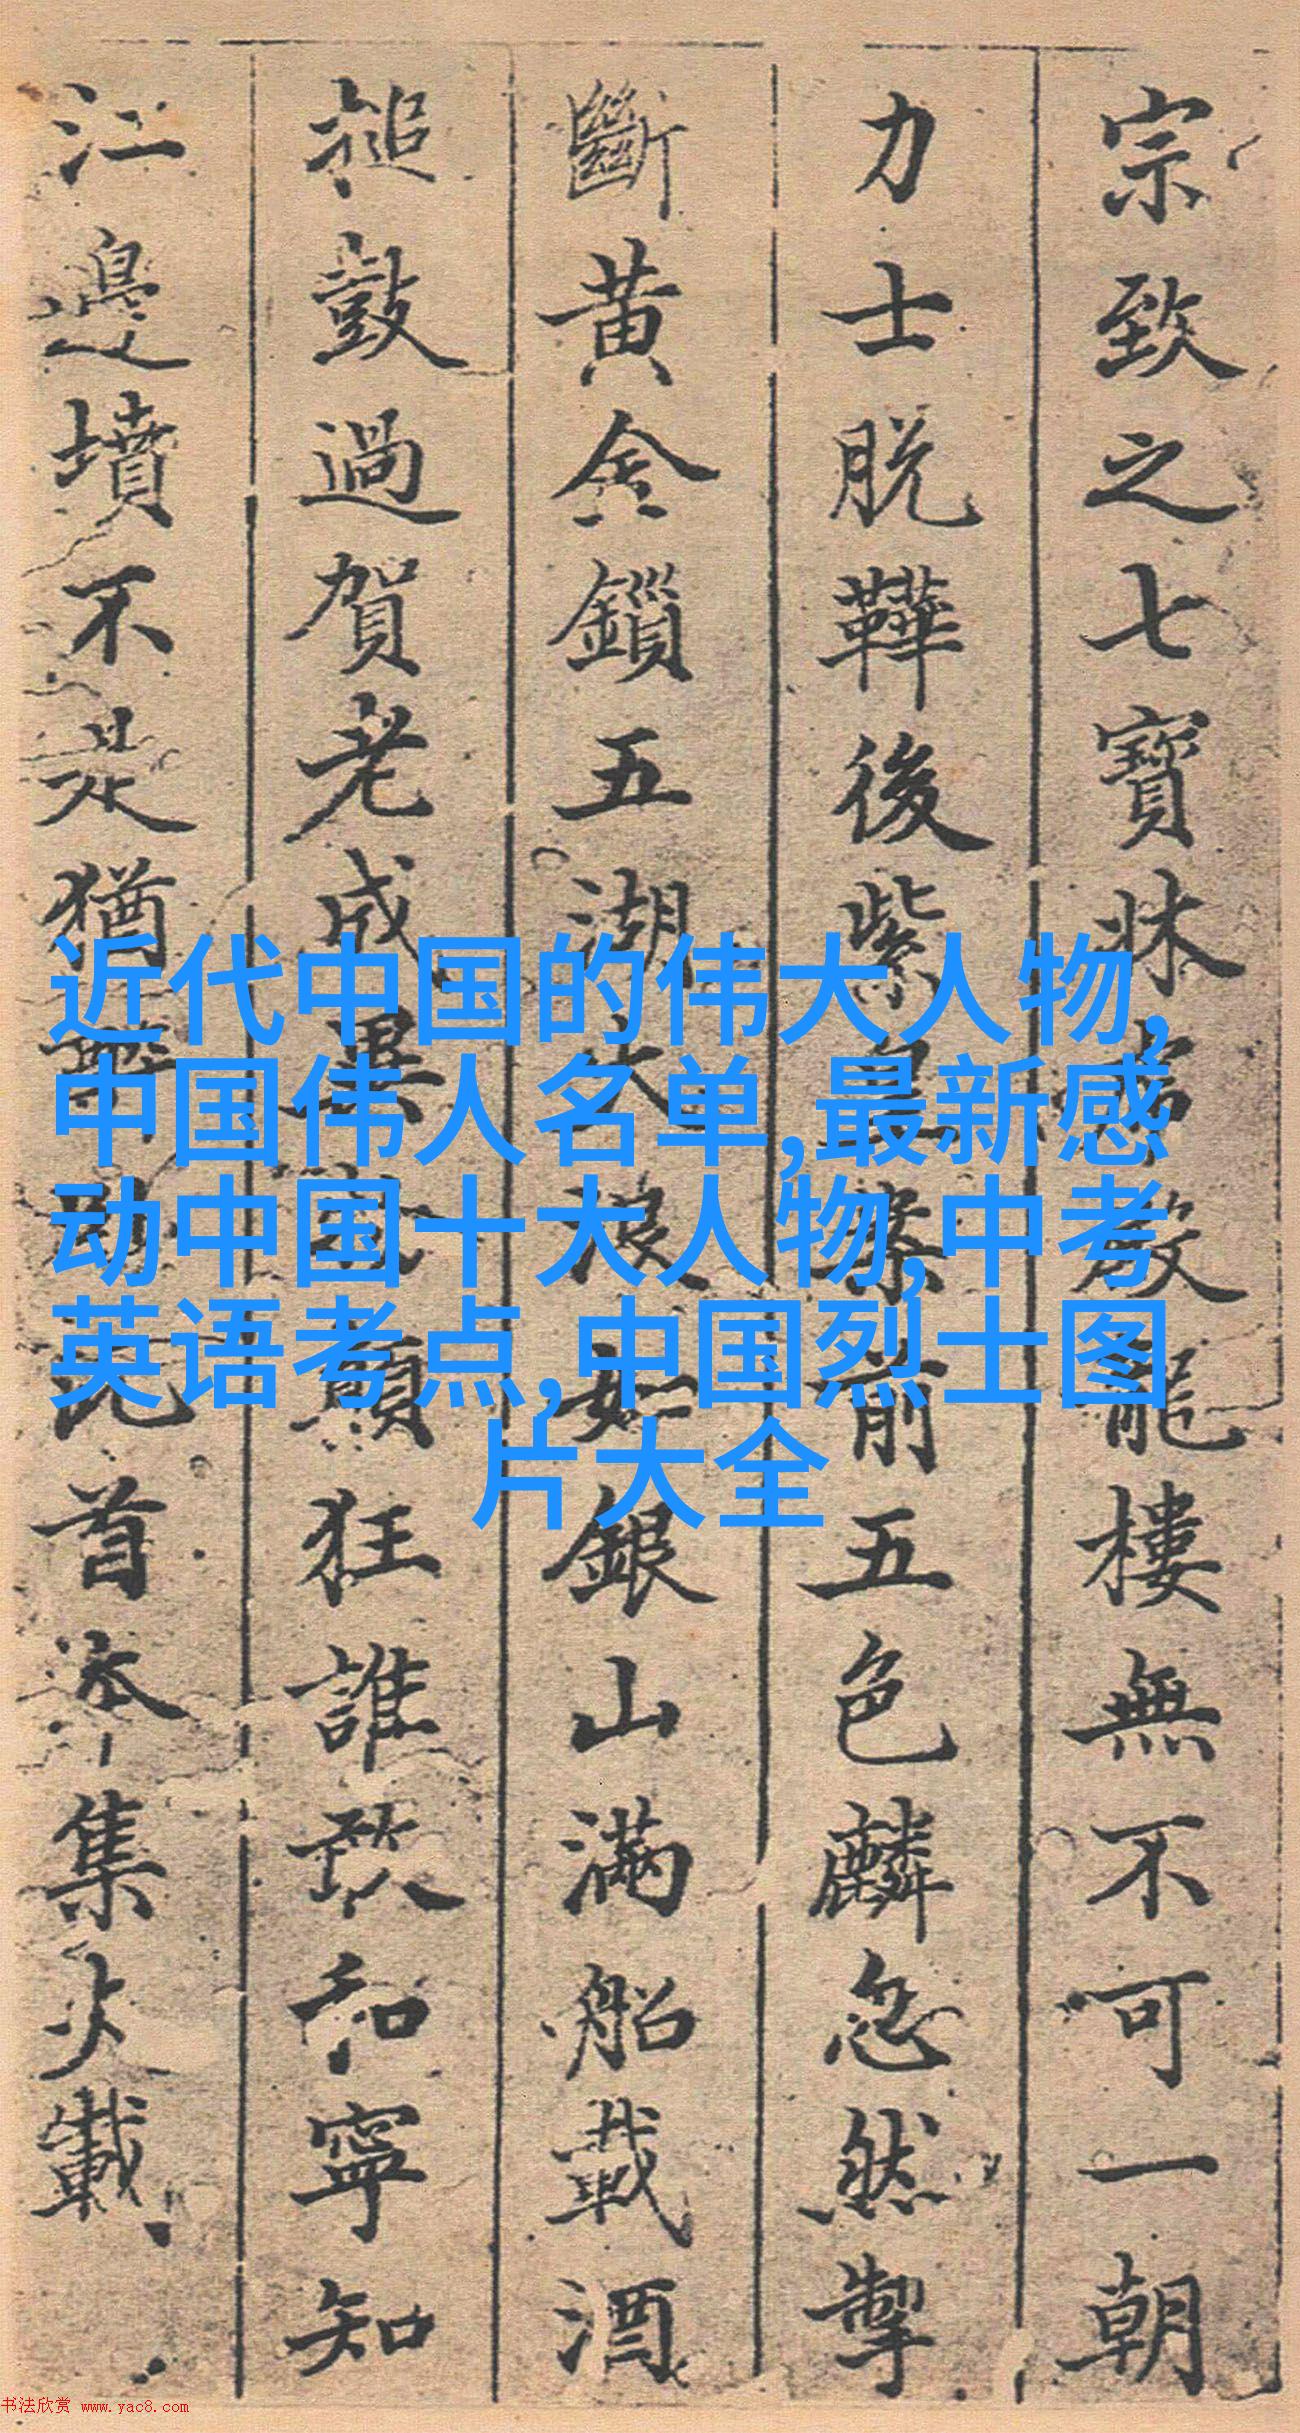 宗致之七寶牀龍樓無不可一朝
力士脫鞾後紫皇案前五色麟忽然掣
斷黃金鎖五湖大浪如銀山滿船載酒
搥鼓過賀老成異物顛狂誰敢和寧知
江邊墳不是猶此首本集載
近代中国的伟大人物,
中国伟人名单,最新感
动中国十大人物,中考
英语考点,中国烈士图
片大全
书法欣赏 www.yac8.com